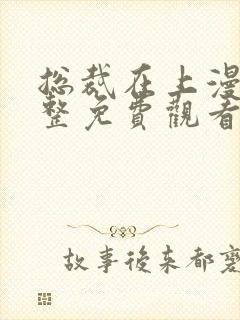 总裁在上漫
整免費觀看
故事後来都